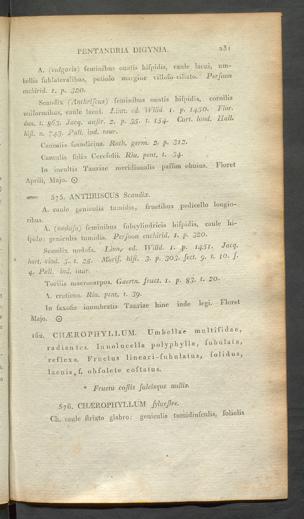 PENTANDRIA DIGYNIA. 281
A. (vulgaris) seminibus ouatis hispidis, caule laeui, um-
bellis sublateralibus, petiolo margine villoso-ciliato. Persoon
enchirid. 1. p. 320.
Scandix (Anthriscus) seminibus ouatis hispidis, corollis
uniformibus, caule laeui. Linn. ed. Willd. 1. p. 1450. Flor.
dan. t. 863. Jacq. austr. 2. p. 35. t. 154. Curt. lond. Hall.
hist. n. 743. Pall. ind. taur.
Caucalis scandicina. Roth. germ. 2. p. 312.
Caucalis folio Cerefolii. Riu. pent. t. 34.
In incultis Tauriae meridionalis passim obuius. Floret
Aprili, Majo. ☉
575. ANTHRISCUS Scandix.
A. caule geniculis tumidis, fructibus pedicello longio-
ribus.
A. (nodosa) seminibus subcylindricis hispidis, caule hi-
spido: geniculis tumidis. Persoon enchirid. 1. p. 320.
Scandix nodosa. Linn. ed. Willd. 1. p. 1451. Jacq.
hort. vind. 3. t. 25. Moris. hist. 3. p. 303. sect. 9. t. 10. f.
4. Pall. ind. taur.
Torilis macrocarpos. Gaertn. fruct. 1. p. 83. t. 20.
A. creticus. Riu. pent. t. 39.
In saxosis inumbratis Tauriae hinc inde legi. Floret
Majo. ☉
162. CHÆROPHYLLUM. Umbellae multifidae,
radiantes. Inuolucella polyphylla, subulata,
reflexa. Fructus lineari-subulatus, solidus,
laeuis, s. obsolete costatus.
* Fructu costis sulcisque nullis.
576. CHÆROPHYLLUM sylvestre.
Ch. caule striato glabro: geniculis tumidiusculis, foliolis